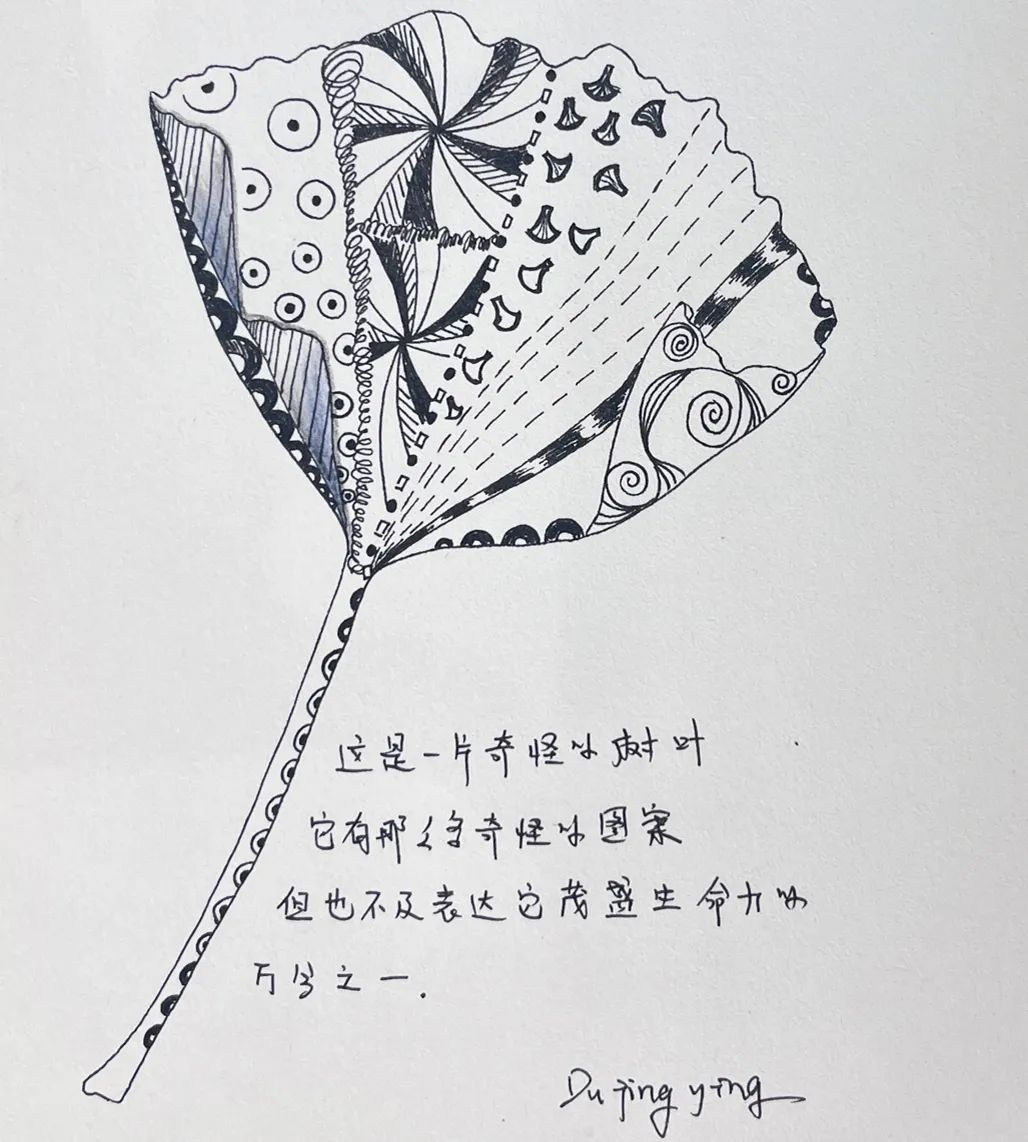 这是一片奇怪的树叶
它有那么多奇怪的图案
但也不及表达它茂盛生命力的
万分之一.
Du jing ying